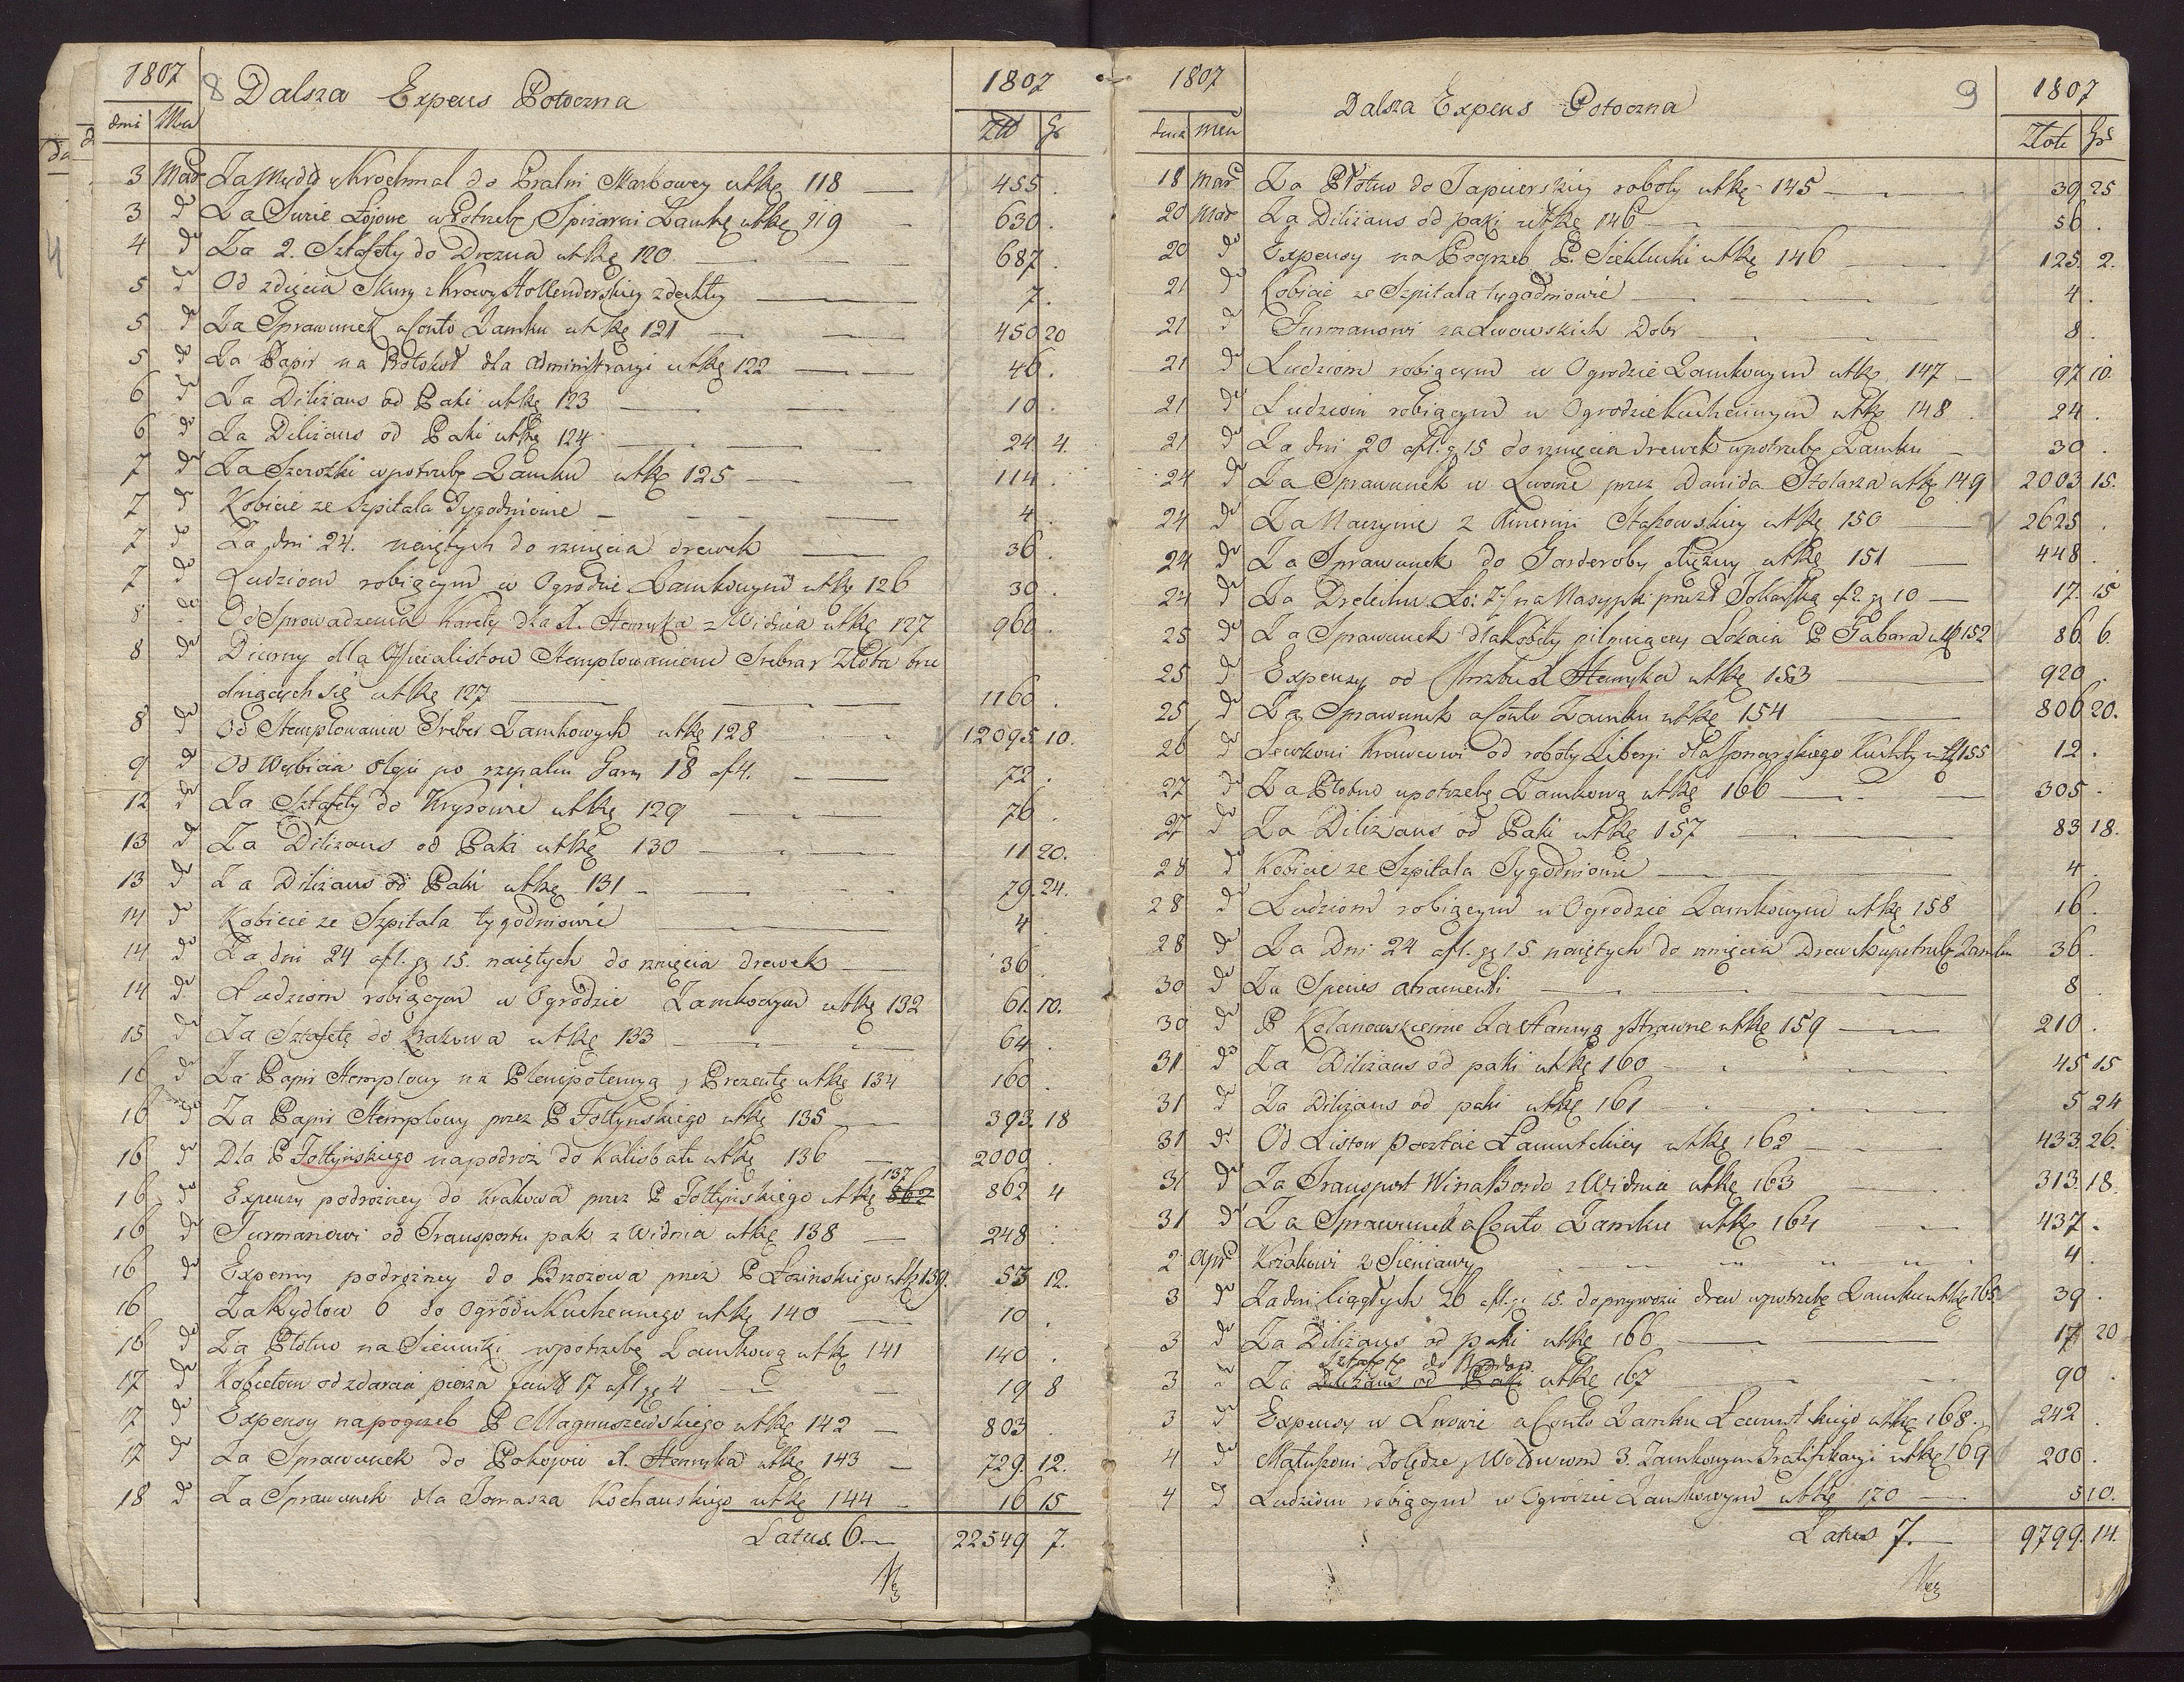 1807 8 Dalsza Expens Potoczna 1807
dnia Men Złł Gr
3 Mar Za Mydło y Krochmal do Pralni Skarbowey wtkę 118 — 455 .
3 do Za Swice Łojowe w Potrzebę Spiżarni Zamku wtkę 119 — 630 .
4 do Za 2. Sztafety do Drezna wtkę 120 — 687 .
5 do Od zdięcia Skury z Krowy Hollenderskiey zdechły — 7 .
5 do Za Sprawunek a Conto Zamku wtkę 121 — 450 20
5 do Za Papir na Protokoł dla Administracyi wtkę 122 — 46 .
6 do Za Diliżans od Paki wtkę 123 — 10 .
6 do Za Diliżans od Paki wtkę 124 — 24 4.
7 do Za Szczotki w potrzebę Zamku wtkę 125 — 114 .
7 do Kobicie ze Szpitala Tygodniowie — 4 .
7 do Za dni 24. naiętych do rznięcia drewek — 36 .
7 do Ludziom robiącym w Ogrodzie Zamkowym wtkę 126 30 .
8 do Od Sprowadzenia Karety dla X. Henryka z Widnia wtkę 127 960 .
8 do Diurny dla Officialistow Stemplowaniem Srebra y Złota tru
dniących się wtkę 127 — 1160 .
8 do Od Stemplowania Sreber Zamkowych wtkę 128 12095 10.
9 do Od Wybicia Oleju po rzepaku Garn 18 afl. — 72 .
12 do Za Sztafetę do Krysowic wtkę 129 — 76 .
13 do Za Diliżans od Paki wtkę 130 — 11 20.
13 do Za Diliżans od Paki wtkę 131 — 79 24.
14 do Kobiecie ze Szpitala tygodniowie — 4 .
14 do Za dni 24 afl. gr 15. naiętych do rznięcia drewek — 36 .
14 do Ludziom robiącym w Ogrodzie Zamkowym wtkę 132 61. 10.
15 do Za Sztafetę do Krakowa wtkę 133 — 64 .
16 do Za Papir Stemplowy na Plenipotencyą y Prezentę wtkę 134 160 .
16 do Za Papir Stemplowy przez P Fołtynskiego wtkę 135 — 393. 18
16 do Dla P Fołtynskiego na podroż do Kalisbatu wtkę 136 — 2000 .
16 do Expensy podrożney do Krakowa przez P Fołtynskiego wtkę 137 862 862 4
16 do Furmanowi od Transportu pak z Widnia wtkę 138 — 248 .
16 do Expensy podrożney do Brzozowa przez P Łozinskiego wtkę 139. 53 12.
16 Za Rydlow 6 do Ogrodu Kuchennego wtkę 140 — 10 .
16 do Za Płotno na Sienniki w potrzebę Zamkową wtkę 141 140 .
17 do Kobietom od zdarcia pierza funt 17 afl gr 4 — 19 8
17 do Expensy na pogrzeb P Magnuszewskiego wtkę 142 — 803 .
17 do Za Sprawunek do Pokojow X. Henryka wtkę 143 — 729. 12.
18 do Za Sprawunek dla Tomasza Kochanskiego wtkę 144 — 16 15
Latus. 6. — 22549 7.
1807 Dalsza Expens Potoczna 9 1807
dnia Men Złote Gr
18 Mar Za Płotno do Tapicerskiey roboty wtkę 145 — 39 25
20 Mar Za Diliżans od paki wtkę 146 — 56 .
20 do Expensy na Pogrzeb P. Sieklucki wtkę 146 — 125. 2.
21 do Kobicie ze Szpitala tygodniowie — 4 .
21 do Furmanowi za Lwowskich Dobr — 8 .
21 do Ludziom robiącym w Ogrodzie Zamkowym wtkę 147 — 97 10.
21 do Ludziom robiącym w Ogrodzie Kuchennym wtkę 148 24 .
21 do Za dni 20 afl. gr 15 do rznięcia drewek w potrzebę Zamku — 30 .
24 do Za Sprawunek w Lwowie przez Dawida Stolarza wtkę 149 2003 15.
24 do Za Naczynie z Kamerni Staszowskiey wtkę 150 — 2625 .
24 do Za Sprawunek do Garderoby Xiężny wtkę 151 — 448 .
24 do Za Drelichu Łoż 7 na Nasypki przez Tokarską afl. 2. gr 10 — 17. 15
25 do Za Sprawunek dla Kobiety pilnuiącey Lokaia P Gabara wtkę 152 86 6.
25 do Expensy od X Henryka wtkę 153 — 920 .
25 do Za Sprawunek a Conto Zamku wtkę 154 — 806 20.
26 do Lewkowi Krawcowi od roboty Liberyi dla Kuchty wtkę 155 12 .
27 do Za Płotno w potrzebę Zamkową wtkę 166 — 305 .
27 do Za Diliżans od Paki wtkę 157 — 83 18.
28 do Kobicie ze Szpitala Tygodniowie — 4 .
28 do Ludziom robiącym w Ogrodzie Zamkowym wtkę 158 16 .
28 do Za Dni 24 afl. gr 15 naiętych do rznięcia Drew w potrzebę Zamku 36 .
30 do Za Species atramenti — 8 .
30 do P Kolanowskiemu Za Stancyą y Strawne wtkę 159 — 210 .
31 do Za Diliżans od paki wtkę 160 — 45 15
31 do Za Diliżans od paki wtkę 161 — 5 24
31 do Od Listow Poczcie Łancutckiey wtkę 162 — 433. 26.
31 do Za Transport Wina Bordo z Widnia wtkę 163 — 313. 18.
31 do Za Sprawunek a Conto Zamku wtkę 164 — 437 .
2 Apr Kozakowi z Sieniawy — 4 .
3 do Za dni Ciągłych 26 afl. gr 15. do przywozu drew w potrzebę Zamku wtkę 165 39 .
3 do Za Diliżans od paki wtkę 166 — 17 20
3 do Za Diliżans od Paki Sztafetę do Brodow wtkę 167 — 90 .
3 do Expensy w Lwowie a Conto Zamku Łancutskiego wtkę 168. 242 .
4 do Matuszowi Dolędze y Woźnicom 3. Zamkowym Gratifikacyi wtkę 169 200 .
4 do Ludziom robiącym w Ogrodzie Zamkowym wtkę 170 — 5 10.
Latus 7. — 9799. 14.